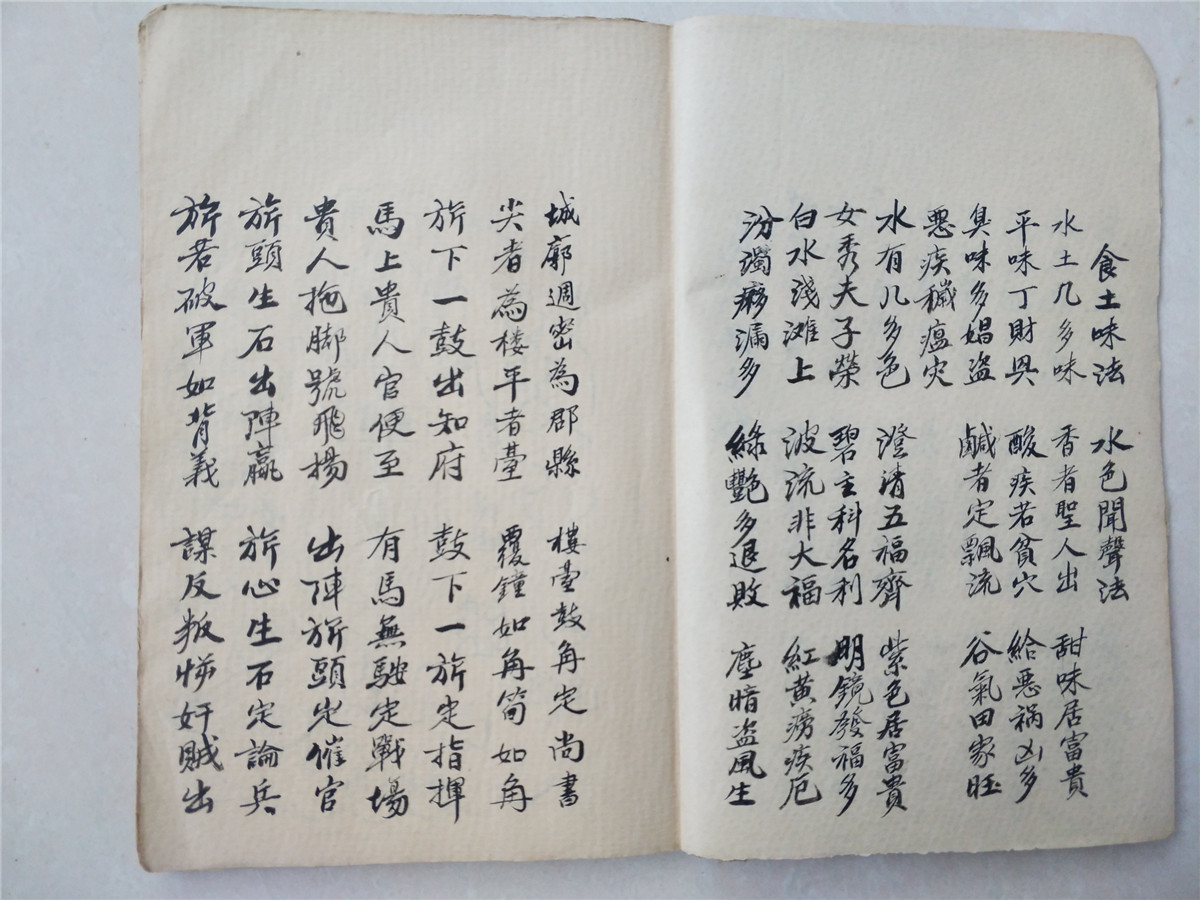 食土味法 水色聞聲法
水土几多味 香者聖人出 甜味居富貴
平味丁財興 酸疾若貧穴 給惡祸凶多
臭味多娼盜 鹹者定飄流 谷氣田家旺
惡疾穢瘟灾
水有几多色 澄清五福齊 紫色居富貴
女秀夫子榮 碧主科名利 明鏡發福多
白水淺滩上 波流非大福 紅黃痨疾厄
汾濁痧漏多 綠艷多退敗 塵暗盜風生
城廓週密為郡縣 樓臺鼓角定尚書
尖者為楼平者臺 覆鐘如角筒如角
旂下一鼓出知府 鼓下一旂定指揮
馬上貴人官便至 有馬無駿定戰場
貴人拖脚號飛揚 出陣旂頭定催官
旂頭生石出陣贏 旂心生石定論兵
旂若破軍如背義 謀反叛悌奸賊出